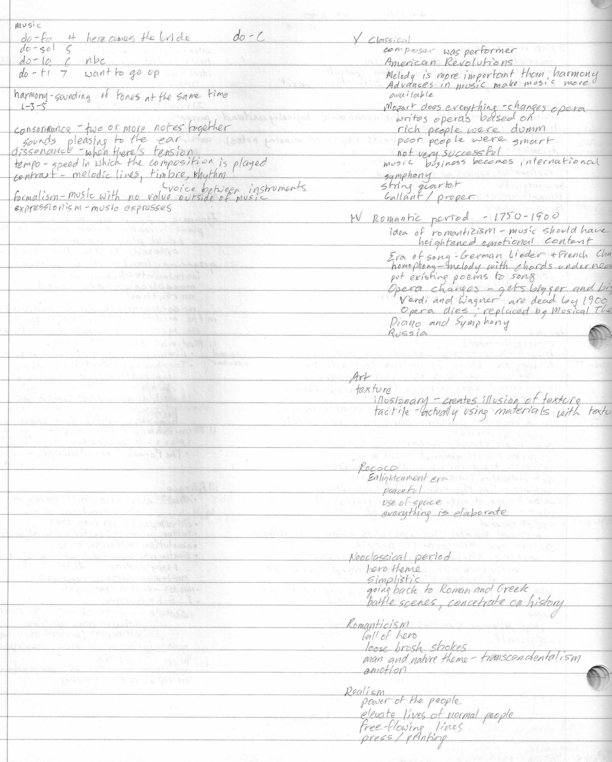 music
do-fa 4 here comes the bride do-C
do-sol 5
do-la 6 nbc
do-ti 7 want to go up
harmony-sounding of tones at the same time
1-3-5
consonance - two or more notes together
sounds pleasing to the ear
dissonance - when there's tension
tempo - speed in which the composition is played
contrast - melodic lines, timbre, rhythm
voice between instruments
formalism - music with no value outside of music
expressionism - music expresses
V Classical
composer was performer
American Revolutions
Melody is more important than harmony
Advances in music make music more
available
Mozart does everything - changes opera
writes operas based on
rich people were dumm
poor people were smart
not very successful
music business becomes international
symphony
string quartet
Gallant / proper
IV Romantic period - 1750-1900
idea of romanticism - music should have
heightened emotional content
Era of song - German Lieder + French
homophony - melody with chords
put existing poems to song
Opera changes - gets bigger and
Verdi and Wagner are dead by 1900
Opera dies, replaced by Musical
Piano and Symphony
Russia
Art
texture
illusionary - creates illusion of texture
tactile - actually using materials with
Rococo
Enlightenment era
peaceful
use of space
everything is elaborate
Neoclassical period
hero theme
simplistic
going back to Roman and Greek
battle scenes, concetrate on history
Romanticism
fall of hero
loose brush strokes
man and nature theme - transcendentalism
emotion
Realism
power of the people
elevate lives of normal people
free-flowing lines
press / printing